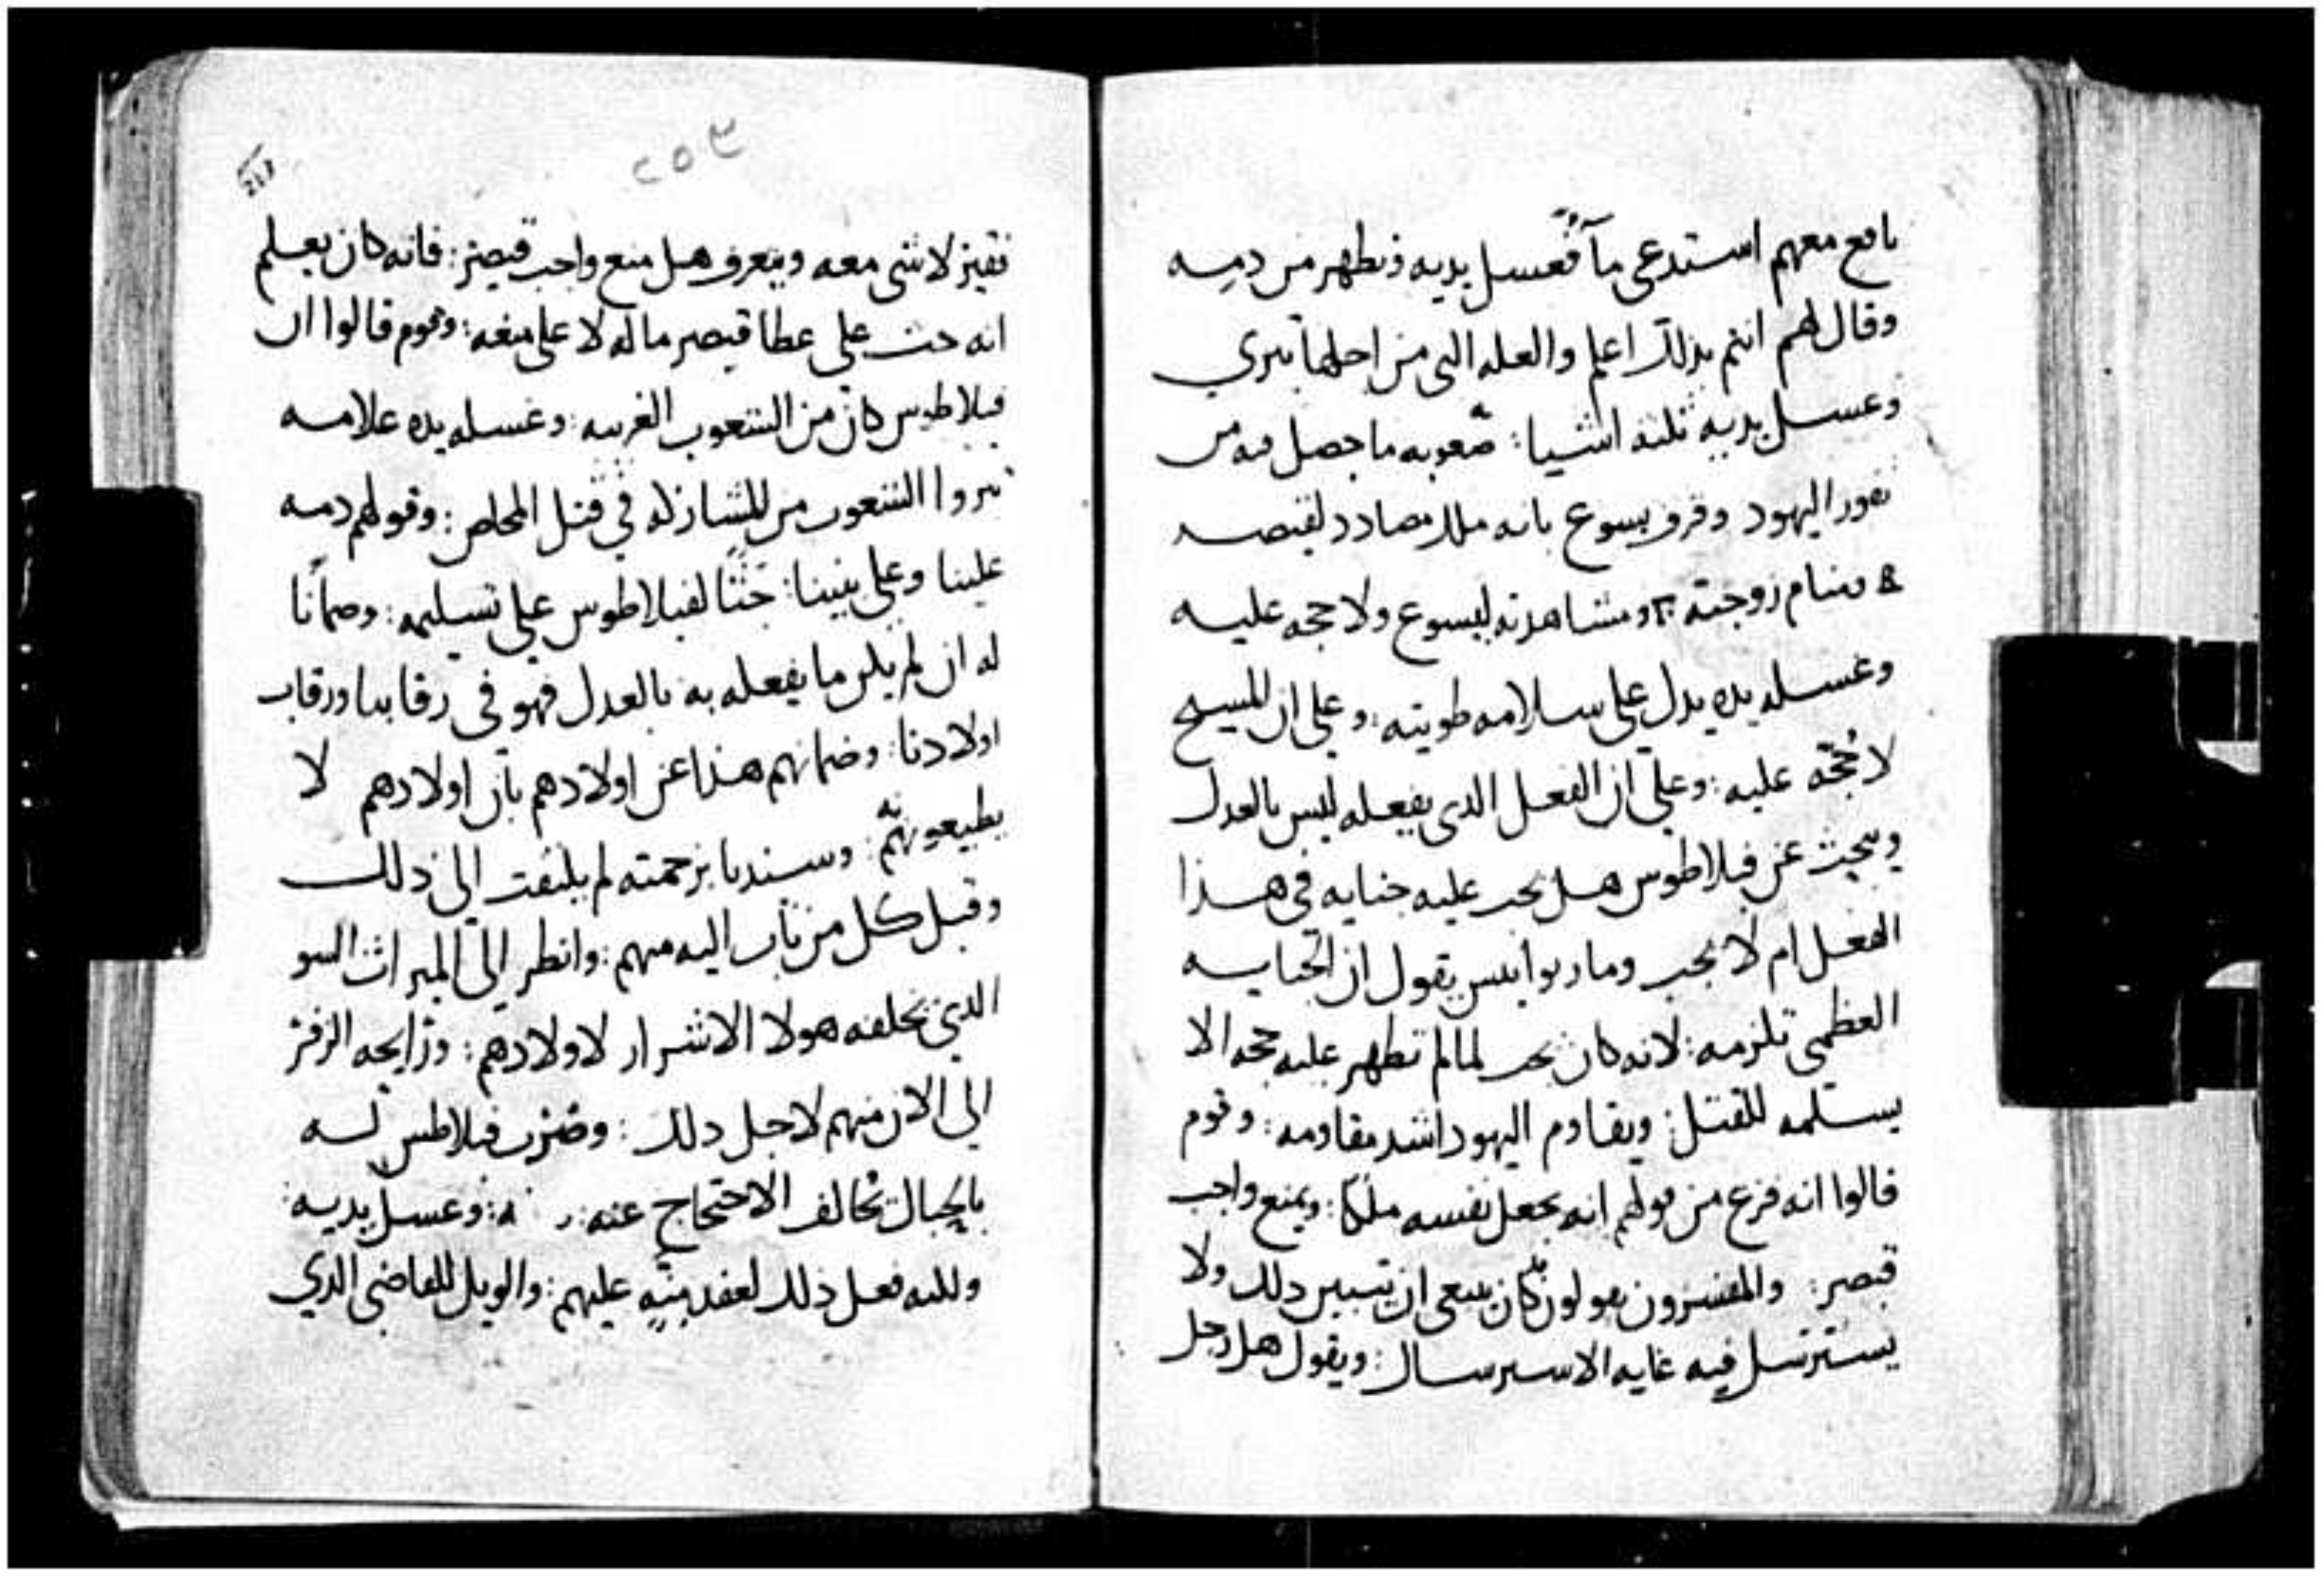 نافع معهم استدعى مآ فغسل يديه وتطهر من دمه
وقال لهم انتم بذلك اعلم والعله التى من اجلها تبري
وغسل يديه ثلثه اشيا: صعوبه ما حصل فيه من
نفور اليهود وقرف يسوع بانه ملك مضادد لقيصر
منام زوجته ومشاهدته ليسوع ولا حجه عليه
وغسله يده يدل على سلامه طويته: وعلى ان المسيح
لا حُجّه عليه: وعلى ان الفعل الدى يفعله ليس بالعدل
ويبحث عن فيلاطوس هل يجب عليه جنايه فى هذا
الفعل ام لا يجب ومار يوانيس يقول ان الجنايه
العظمى تلزمه: لانه كان يجب لما لم تظهر عليه حجه الا
يسلمه للقتل: ويقاوم اليهود اشد مقاومه: وقوم
قالوا انه فزع من قولهم انه يجعل نفسه ملكا: ويمنع واجب
قيصر: والمفسرون يقولون كان ينبغى ان يتبين ذلك ولا
يسترسل فيه غايه الاسترسال: ويقول هل رجل
٢٥٣
213
فقيز لا شى معه ويتعرف هل منع واجب قيصر: فانه كان يعلم
انه حث على عطا قيصر ماله لا على منعه: وقوم قالوا ان
فيلاطوس كان من الشعوب الغريبه: وغسله يده علامه
تبروا الشعوب من المشاركه في قتل المخلص: وقولهم دمه
علينا وعلى بنينا: حَثًّا لفيلاطوس على تسليمه: وضمانًا
له ان لم يكن ما يفعله به بالعدل فهو فى رقابنا ورقاب
اولادنا: وضمانهم هذا عن اولادهم بان اولادهم لا
يطيعونهم: وسيدنا برحمته لم يلتفت الى ذلك
وقبل كل من تاب اليه منهم: وانظر الى الميراث السو
الدي يخلفه هولا الاشرار لاولادهم: ورايحه الزفر
الى الان منهم لاجل دلك: وضرب فيلاطس له
بالحبال تخالف الاحتجاج عنه: وغسل يديه:
ولله فعل ذلك لعقد عليهم: والويل للقاضى الدي